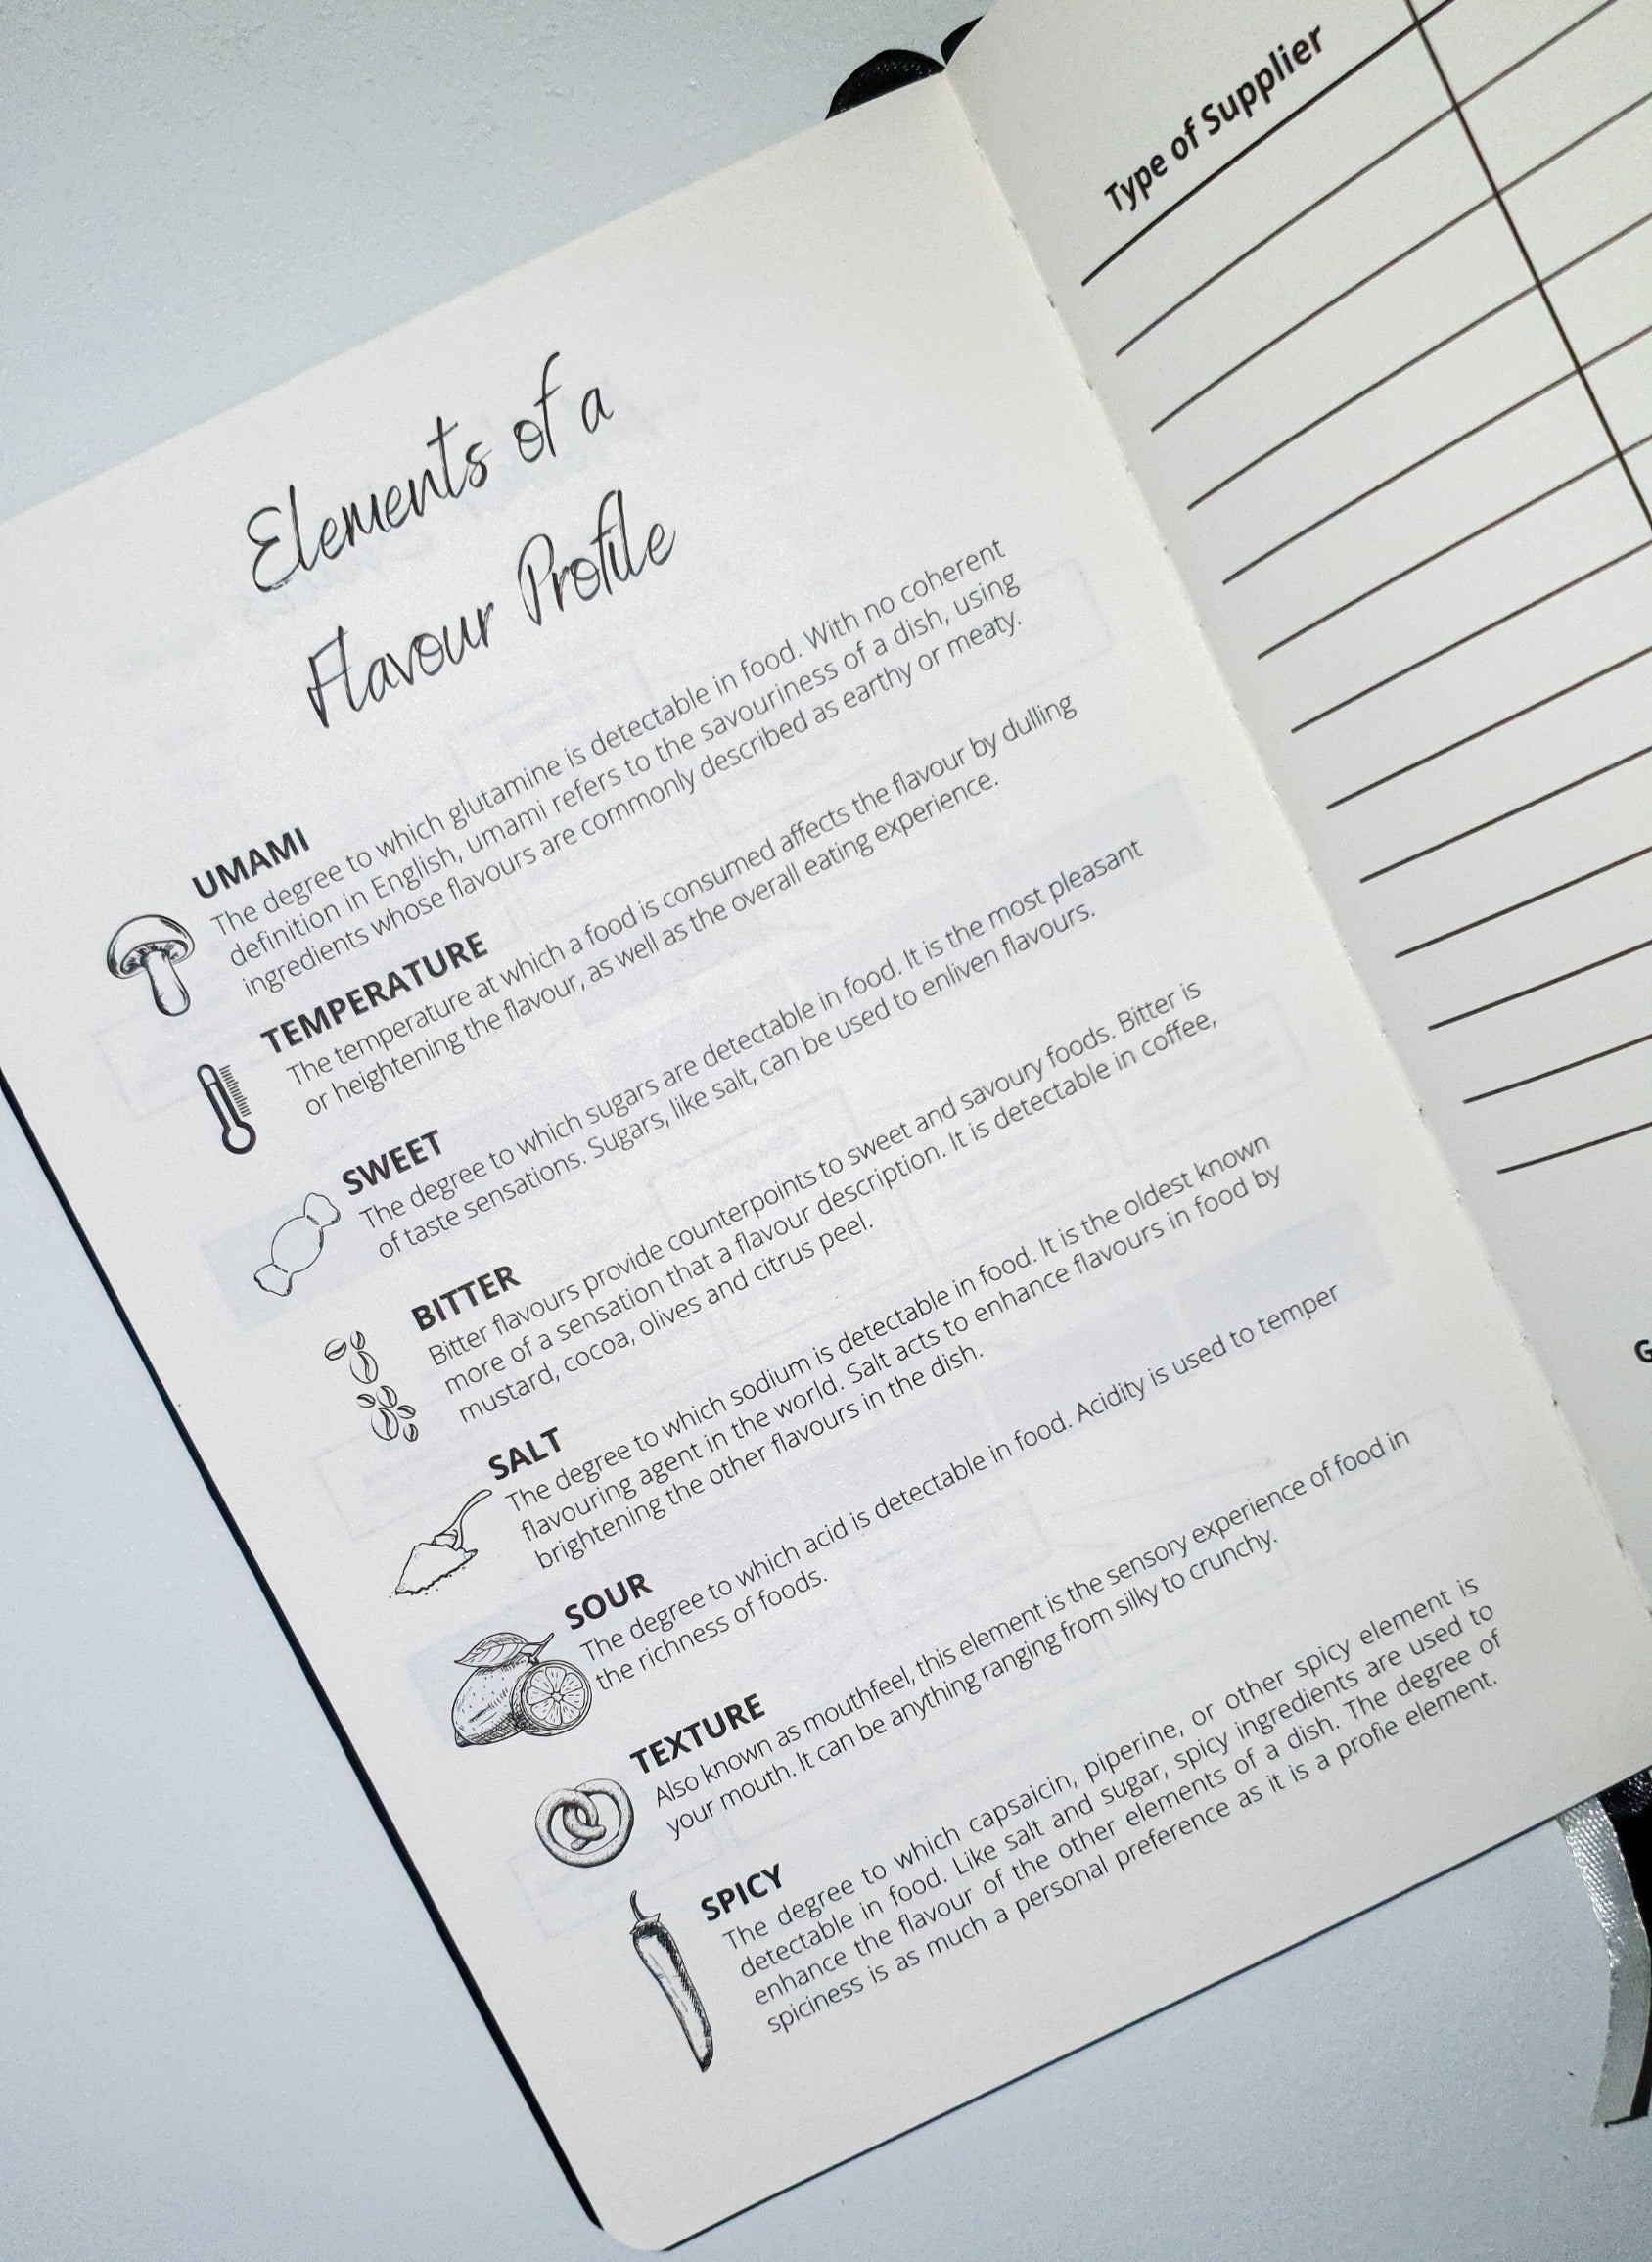 Elements of a
Flavour Profile
UMAMI
The degree to which glutamine is detectable in food. With no coherent
definition in English, umami refers to the savouriness of a dish, using
ingredients whose flavours are commonly described as earthy or meaty.
TEMPERATURE
The temperature at which a food is consumed affects the flavour by dulling
or heightening the flavour, as well as the overall eating experience.
SWEET
The degree to which sugars are detectable in food. It is the most pleasant
of taste sensations. Sugars, like salt, can be used to enliven flavours.
BITTER
Bitter flavours provide counterpoints to sweet and savoury foods. Bitter is
more of a sensation that a flavour description. It is detectable in coffee,
mustard, cocoa, olives and citrus peel.
SALT
The degree to which sodium is detectable in food. It is the oldest known
flavouring agent in the world. Salt acts to enhance flavours in food by
brightening the other flavours in the dish.
SOUR
The degree to which acid is detectable in food. Acidity is used to temper
the richness of foods.
TEXTURE
Also known as mouthfeel, this element is the sensory experience of food in
your mouth. It can be anything ranging from silky to crunchy.
SPICY
The degree to which capsaicin, piperine, or other spicy element is
detectable in food. Like salt and sugar, spicy ingredients are used to
enhance the flavour of the other elements of a dish. The degree of
spiciness is as much a personal preference as it is a profie element.
Type of Supplier